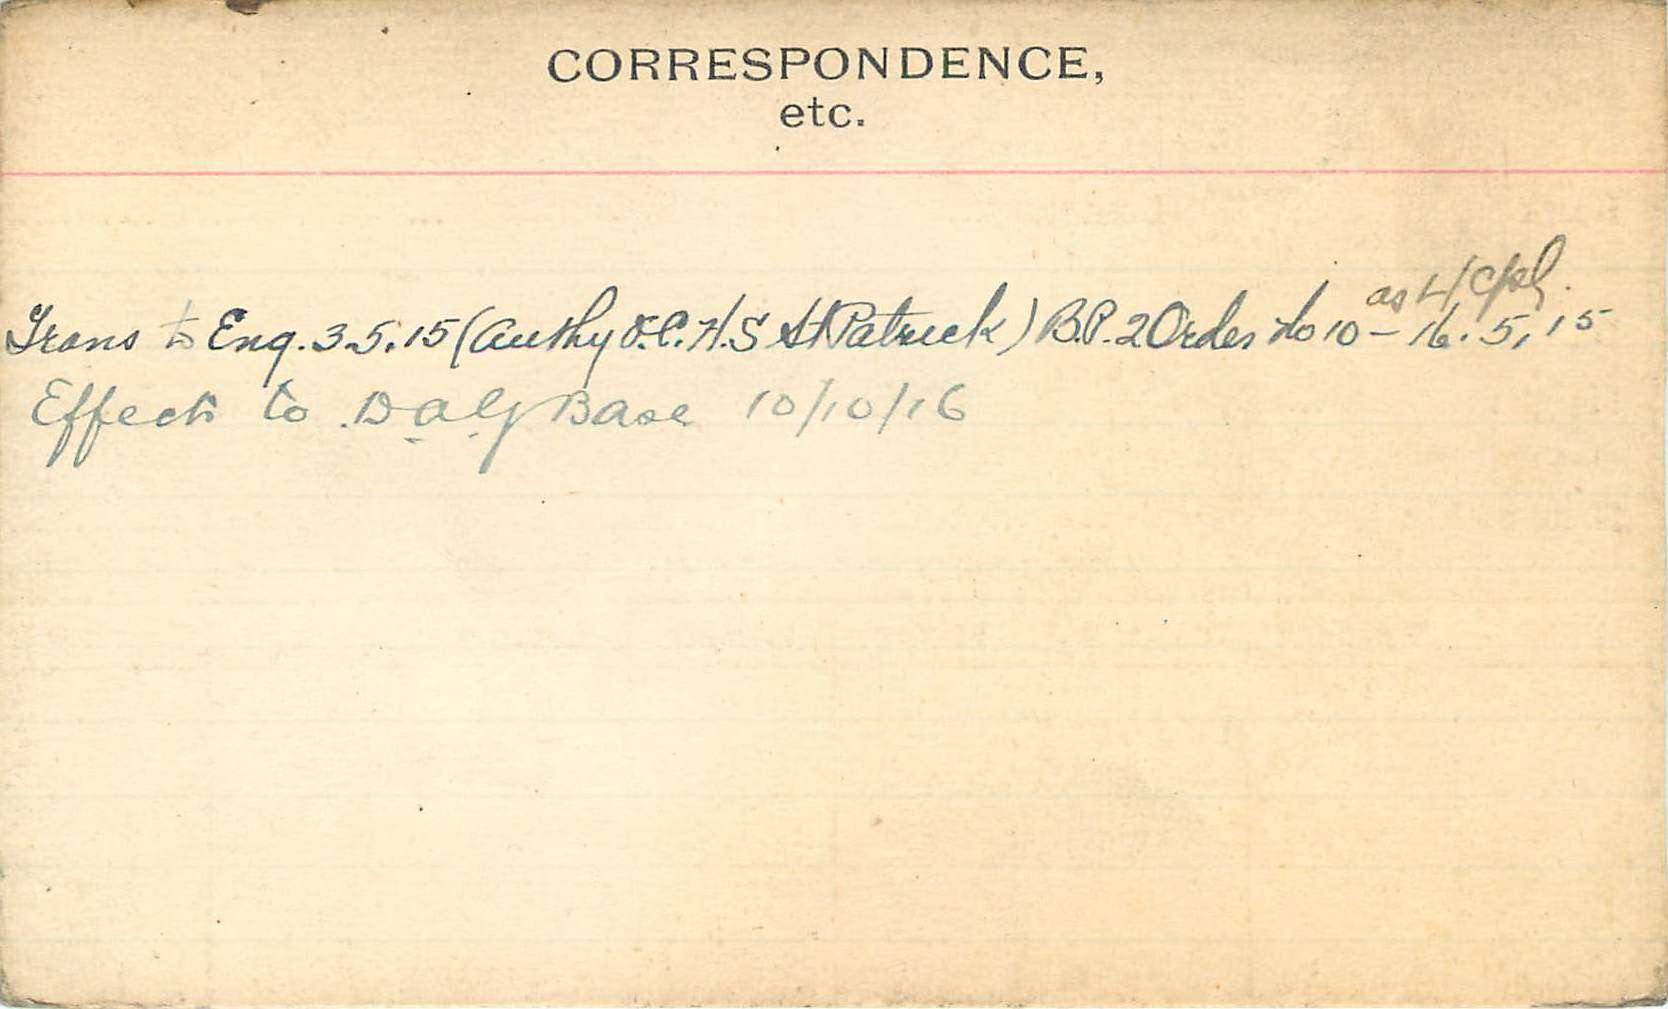 CORRESPONDENCE,
etc.
as L/Cpl.
Trans to Eng. 3.5.15 (Authy O.C. H.S St Patrick) B.P. 2 Order No 10 - 16.5.15
Effects to D.A.G Base 10/10/16